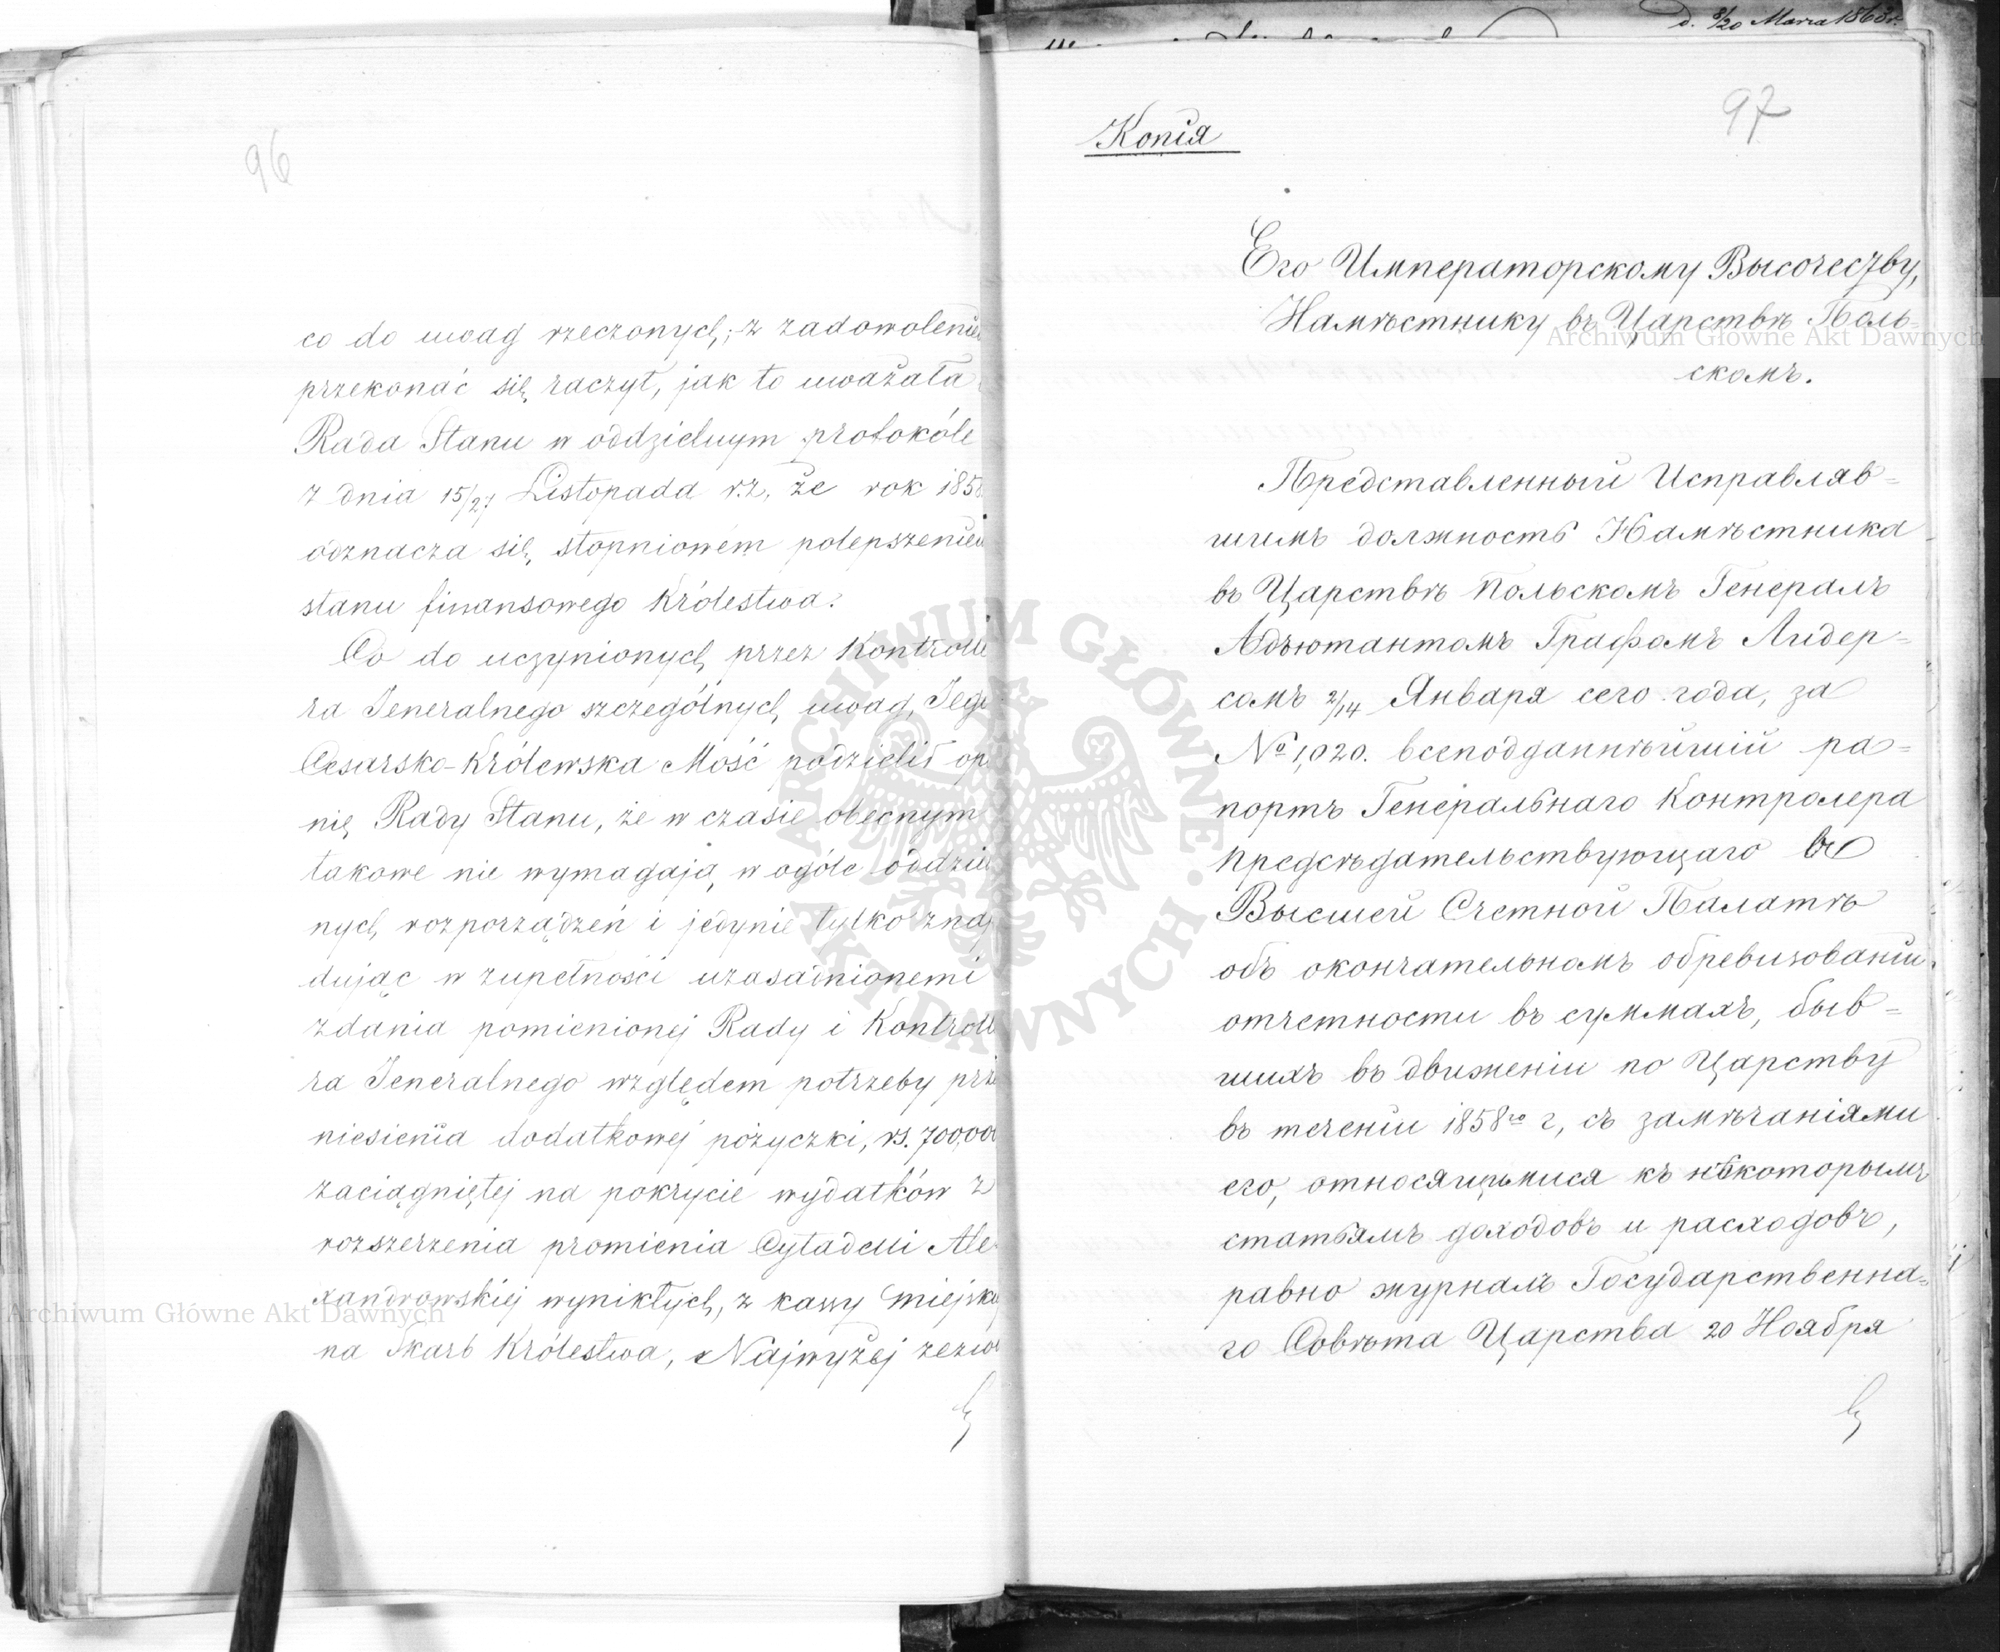 96
co do uwag rzeczonych; z zadowoleniem
przekonać się raczył, jak to uważała
Rada Stanu w oddzielnym protokóle
z dnia 15/27 Listopada r.z. że rok 1858
odznacza się stopniowém polepszeniem
stanu finansowego Królestwa.
Co do uczynionych przez Kontrolle
ra Jeneralnego szczególnych uwag, Jego
Cesarsko-Królewska Mość podzielił opi
nię Rady Stanu, że w czasie obecnym
takowe nie wymagają w ogóle oddziel
nych rozporządzeń i jedynie tylko znaj
dując w zupełności uzasadnionemi
zdania pomienionej Rady i Kontrolle
ra Jeneralnego względem potrzeby prze
niesienia dodatkowej pożyczki, rs. 700,000
zaciągniętej na pokrycie wydatków z
rozszerzenia promienia Cytadelli Ale
xandrowskiej wynikłych, z kassy miejskiej
na Skarb Królestwa, Najwyżej zezwo
d. 8/20 Marca 1863 r.
97
Копія
Его Императорскому Высочеству,
Намѣстнику въ Царствѣ Поль-
скомъ.
Представленный Исправляв-
шимъ должность Намѣстника
въ Царствѣ Польскомъ Генералъ
Адъютантомъ Графомъ Лидер-
сомъ 2/14 Января сего года, за
№ 1,020. всеподданнѣйшій ра-
портъ Генеральнаго Контролера
предсѣдательствующаго въ
Высшей Счетной Палатѣ
объ окончательномъ обревизованіи
отчетности въ суммахъ, быв-
шихъ въ движеніи по Царству
въ теченіи 1858го г, съ замѣчаніями
его, относящимися къ нѣкоторымъ
статьямъ доходовъ и расходовъ,
равно журналъ Государственна-
го Совѣта Царства 20 Ноября
Archiwum Główne Akt Dawnych
Archiwum Główne Akt Dawnych
ARCHIWUM GŁÓWNE AKT DAWNYCH